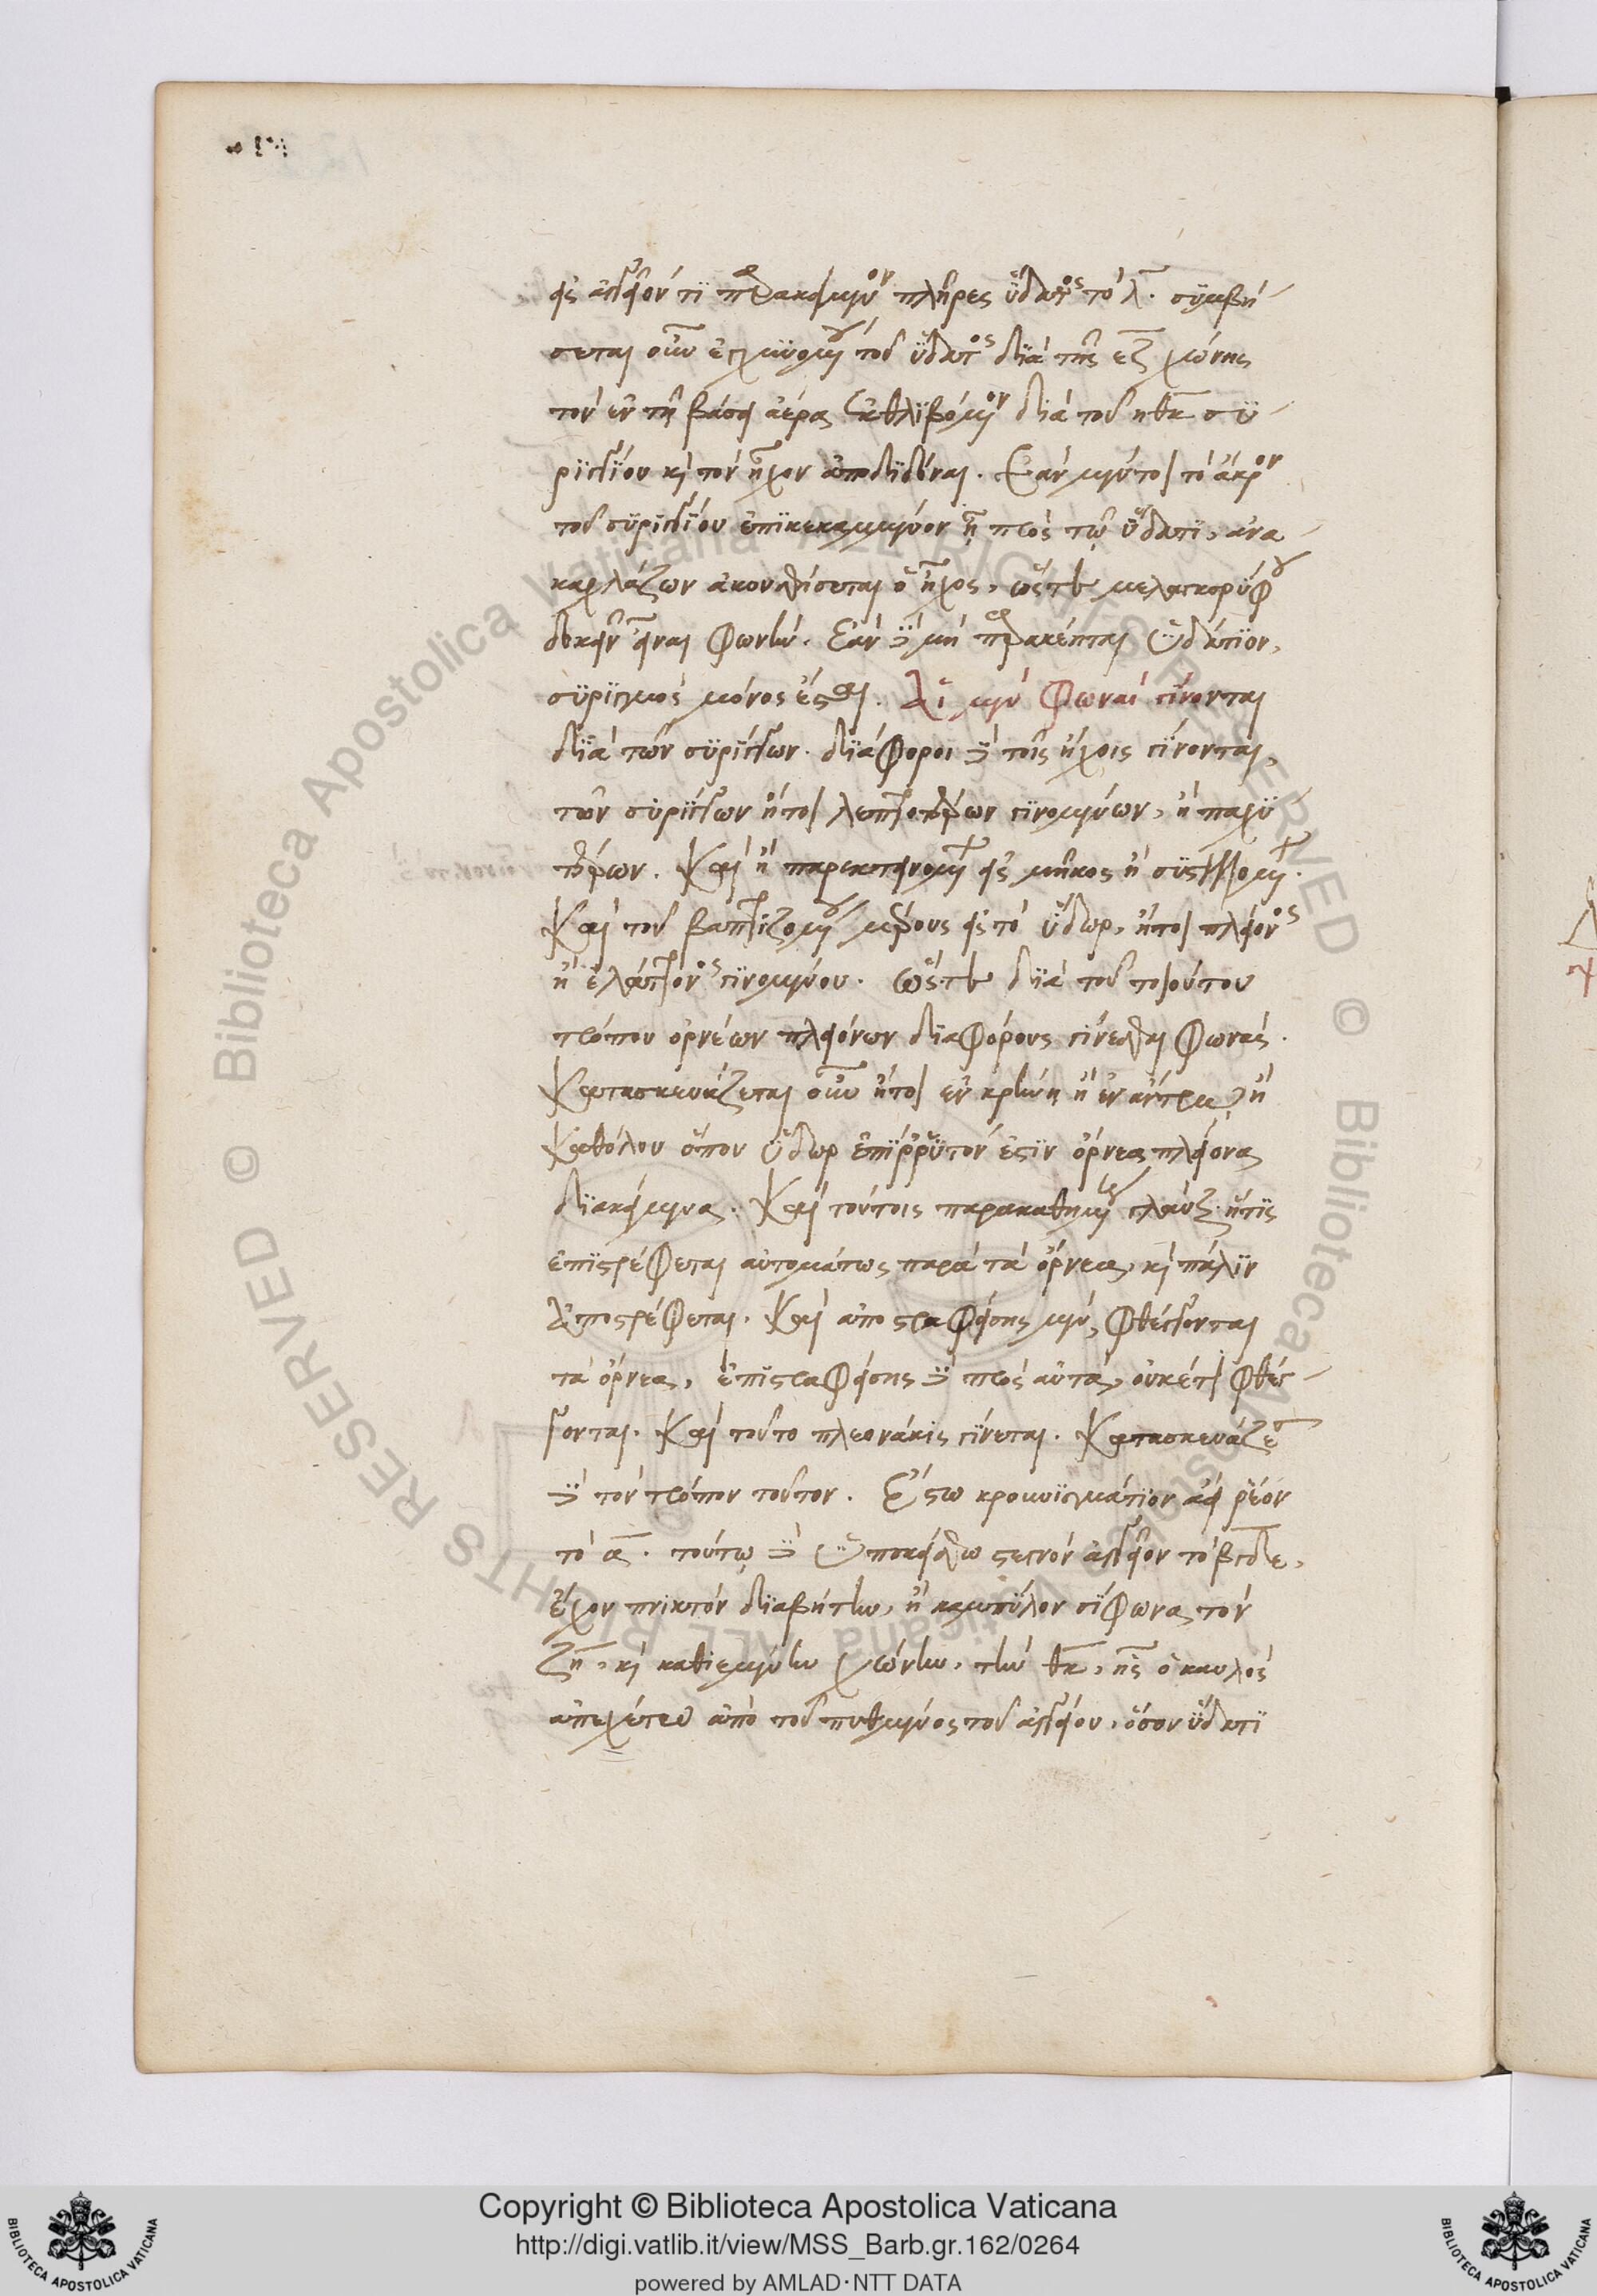 εἰς ἀγγεῖόν τι παρακείμενον πλῆρες ὕδατος τὸ λ. συμβή-
σεται οὖν ἐγχυνομένου τοῦ ὕδατος διὰ τῆς εζ χώνης
τὸν ἐν τῇ βάσει ἀέρα ἐκθλιβόμενον διὰ τοῦ ηθκ συ-
ριγγίου καὶ τὸν ἦχον ἀποδιδόναι. Ἐὰν μέντοι τὸ ἄκρον
τοῦ συριγγίου ἐπικεκαμμένον ᾖ πρὸς τῷ ὕδατι, ἀνα-
καχλάζων ἀκουσθήσεται ὁ ἦχος, ὥστε μελαγκορύφου
δοκεῖν εἶναι φωνήν. Ἐὰν δὲ μὴ παρακέηται ὑδάτιον,
συριγμὸς μόνος ἔσται. Αἱ μὲν φωναὶ γίνονται
διὰ τῶν συρίγγων. διάφοροι δὲ τοῖς ἤχοις γίνονται,
τῶν συρίγγων ἤτοι λεπτοτέρων γινομένων, ἢ παχυ-
τέρων. Καὶ ἢ παρεκτεινομένων εἰς μῆκος ἢ συστελλομένων.
Καὶ τοῦ βαπτιζομένου μέρους εἰς τὸ ὕδωρ, ἤτοι πλείονος
ἢ ἐλάττονος γινομένου. ὥστε διὰ τοῦ τοιούτου
τρόπου ὀρνέων πλειόνων διαφόρους γίνεσθαι φωνάς.
Κατασκευάζεται οὖν ἤτοι ἐν κρήνῃ ἢ ἐν ἄντρῳ ἢ
καθόλου ὅπου ὕδωρ ἐπίρρυτόν ἐστιν ὄρνεα πλείονα
διακείμενα. Καὶ τούτοις παρακαθημένη γλαύξ ἥτις
ἐπιστρέφεται αὐτομάτως παρὰ τὰ ὄρνεα, καὶ πάλιν
ἀποστρέφεται. Καὶ ἀποστραφείσης μὲν, φθέγγονται
τὰ ὄρνεα, ἐπιστραφείσης δὲ πρὸς αὐτὰ, οὐκέτι φθέγ-
γονται. Καὶ τοῦτο πλεονάκις γίνεται. Κατασκευάζεται
δὲ τὸν τρόπον τοῦτον. Ἔστω κρουνισμάτιον ἀεὶ ῥέον
τὸ α. τούτῳ δὲ ὑποκείσθω στεγνὸν ἀγγεῖον τὸ βγδε,
ἔχον πνικτὸν διαβήτην, ἢ καμπύλον σίφωνα τὸν
ζη, καὶ καθιεμένην χώνην, τὴν θκ, ἧς ὁ καυλὸς
ἀπεχέτω ἀπὸ τοῦ πυθμένος τοῦ ἀγγείου, ὅσον ὕδατι
Copyright © Biblioteca Apostolica Vaticana
http://digi.vatlib.it/view/MSS_Barb.gr.162/0264
powered by AMLAD·NTT DATA